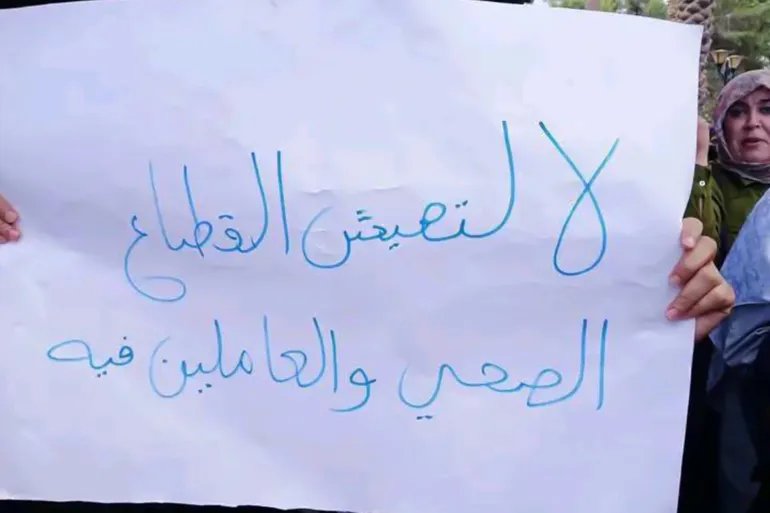 لا لتهميش القطاع
الصحي والعاملين فيه